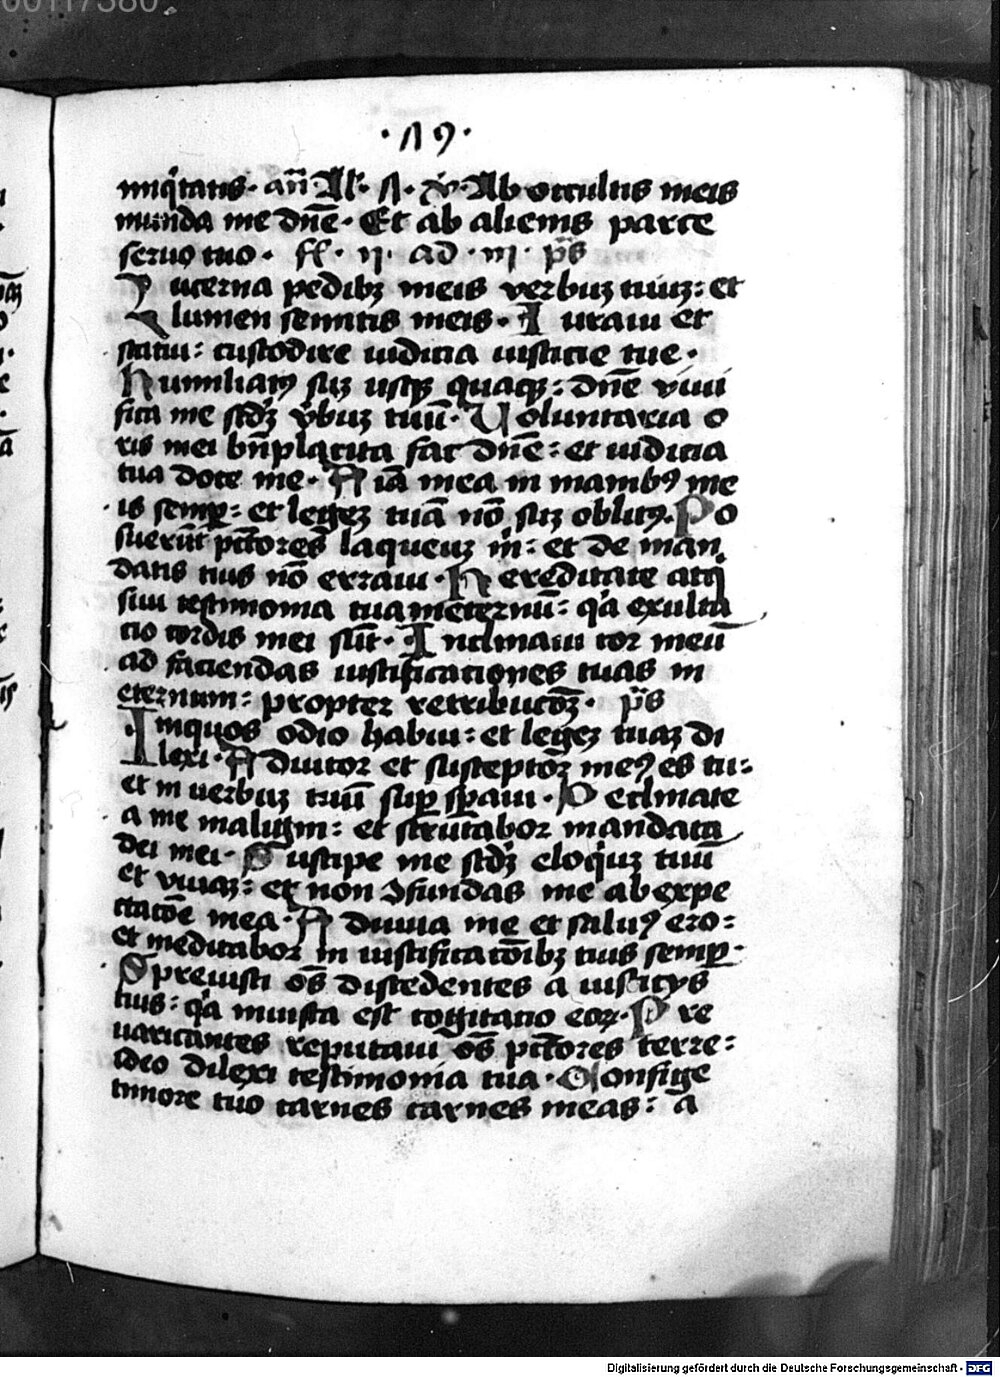 00117580
·19·
iniq̇tatis· an̄ Al̄· A· ℣· Ab occultis meis
munda me dn̄e· Et ab alienis parce
seruo tuo· ff· ij· ad· iij· p̄s
Lucerna pedibꝫ meis verbuꝫ tuuꝫ: et
lumen semitis meis· Iuraui et
statui: custodire iudicia iusticie tue·
Humiliatꝰ suꝫ usqꝫ quaqꝫ: dn̄e viui
fica me scd̄ꝫ v̇buꝫ tuū· Uoluntaria o
ris mei bn̄placita fac dn̄e: et iudicia
tua doce me· Aīa mea in manibꝰ me
is semꝑ: et legeꝫ tuā nō suꝫ oblitꝰ· Po
suerūt pc̄tores laqueuꝫ m̄: et de man
datis tuis nō erraui· Hereditate acq̇
siui testimonia tua in eternū: q̇a exulta
cio cordis mei sūt· Inclinaui cor meū
ad faciendas iustificationes tuas in
eternum: propter retribucōꝫ· p̄s
Iniquos odio habui: et legeꝫ tuaꝫ di
lexi· Adiutor et susceptor meꝰ es tu:
et in uerbuꝫ tuū suꝑ sp̄aui· Declinate
a me maligni: et scrutabor mandata
dei mei· Suscipe me scd̄ꝫ eloq̇uꝫ tuū
et viuaꝫ: et non ꝯfundas me ab expe
ctacōe mea· Adiuua me et saluꝰ ero:
et meditabor in iustificacōibꝫ tuis semꝑ·
Spreuisti oēs discedentes a iusticijs
tuis: q̇a iniusta est cogitatio eoꝝ· Pre
uaricantes reputaui oēs pc̄tores terre:
ideo dilexi testimonia tua· Confige
timore tuo carnes carnes meas: a
Digitalisierung gefördert durch die Deutsche Forschungsgemeinschaft - DFG